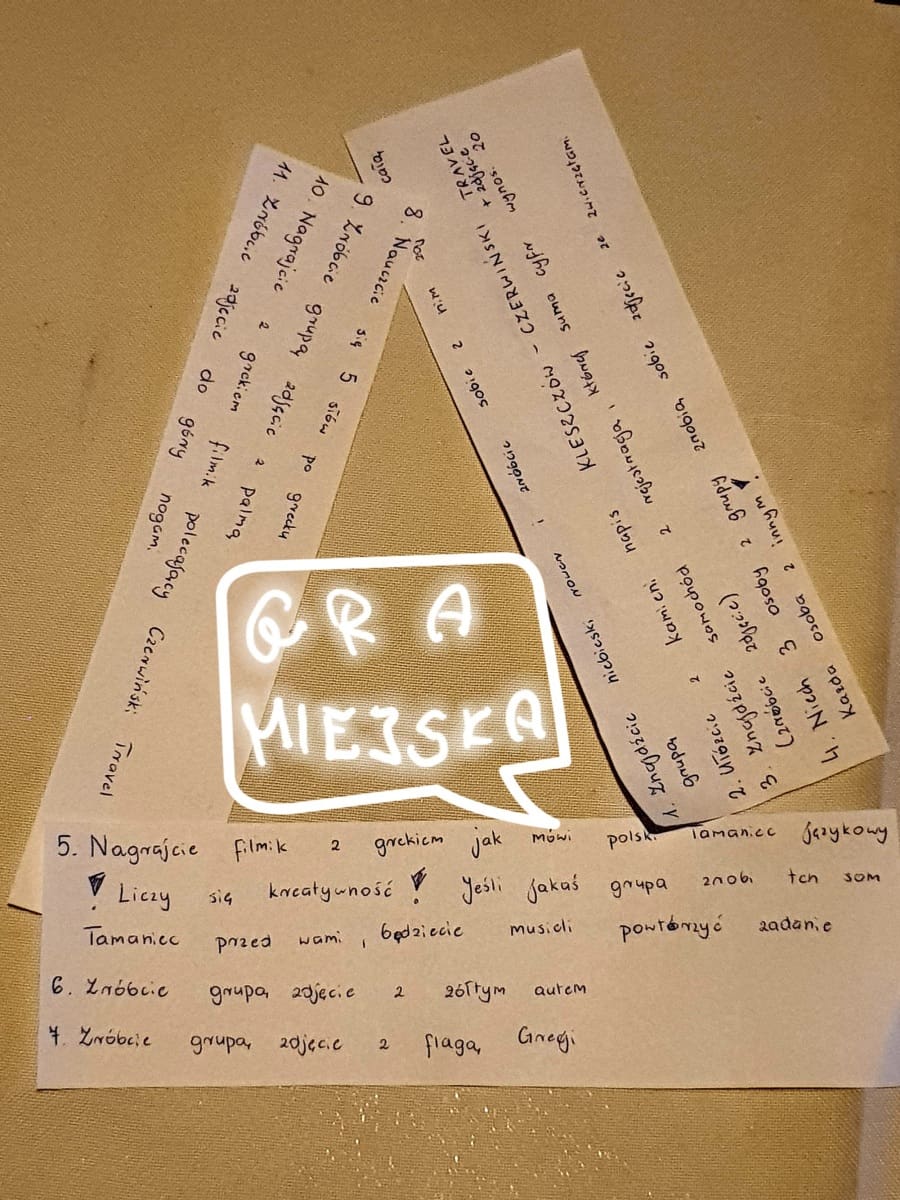 GRA
MIEJSKA
1. Znajdźcie niebieski rower i zróbcie sobie z nim całą
grupą
2. Ułóżcie z kamieni napis KLESZCZÓW - CZERWIŃSKI TRAVEL
+ zdjęcie
3. Znajdźcie samochód z rejestracją, której suma cyfr wynosi 20
(zróbcie zdjęcie)
4. Niech 3 osoby z grupy zrobią sobie zdjęcie ze zwierzętami.
Każda osoba z innym!
5. Nagrajcie filmik z grekiem jak mówi polski łamaniec językowy
! Liczy się kreatywność! Jeśli jakaś grupa zrobi ten sam
łamaniec przed wami, będziecie musieli powtórzyć zadanie
6. Zróbcie grupą zdjęcie z żółtym autem
7. Zróbcie grupą zdjęcie z flagą Grecji
8. Nauczcie się 5 słów po grecku
9. Zróbcie grupą zdjęcie z palmą
10. Nagrajcie z grekiem filmik polecający Czerwiński Travel
11. Zróbcie zdjęcie do góry nogami.